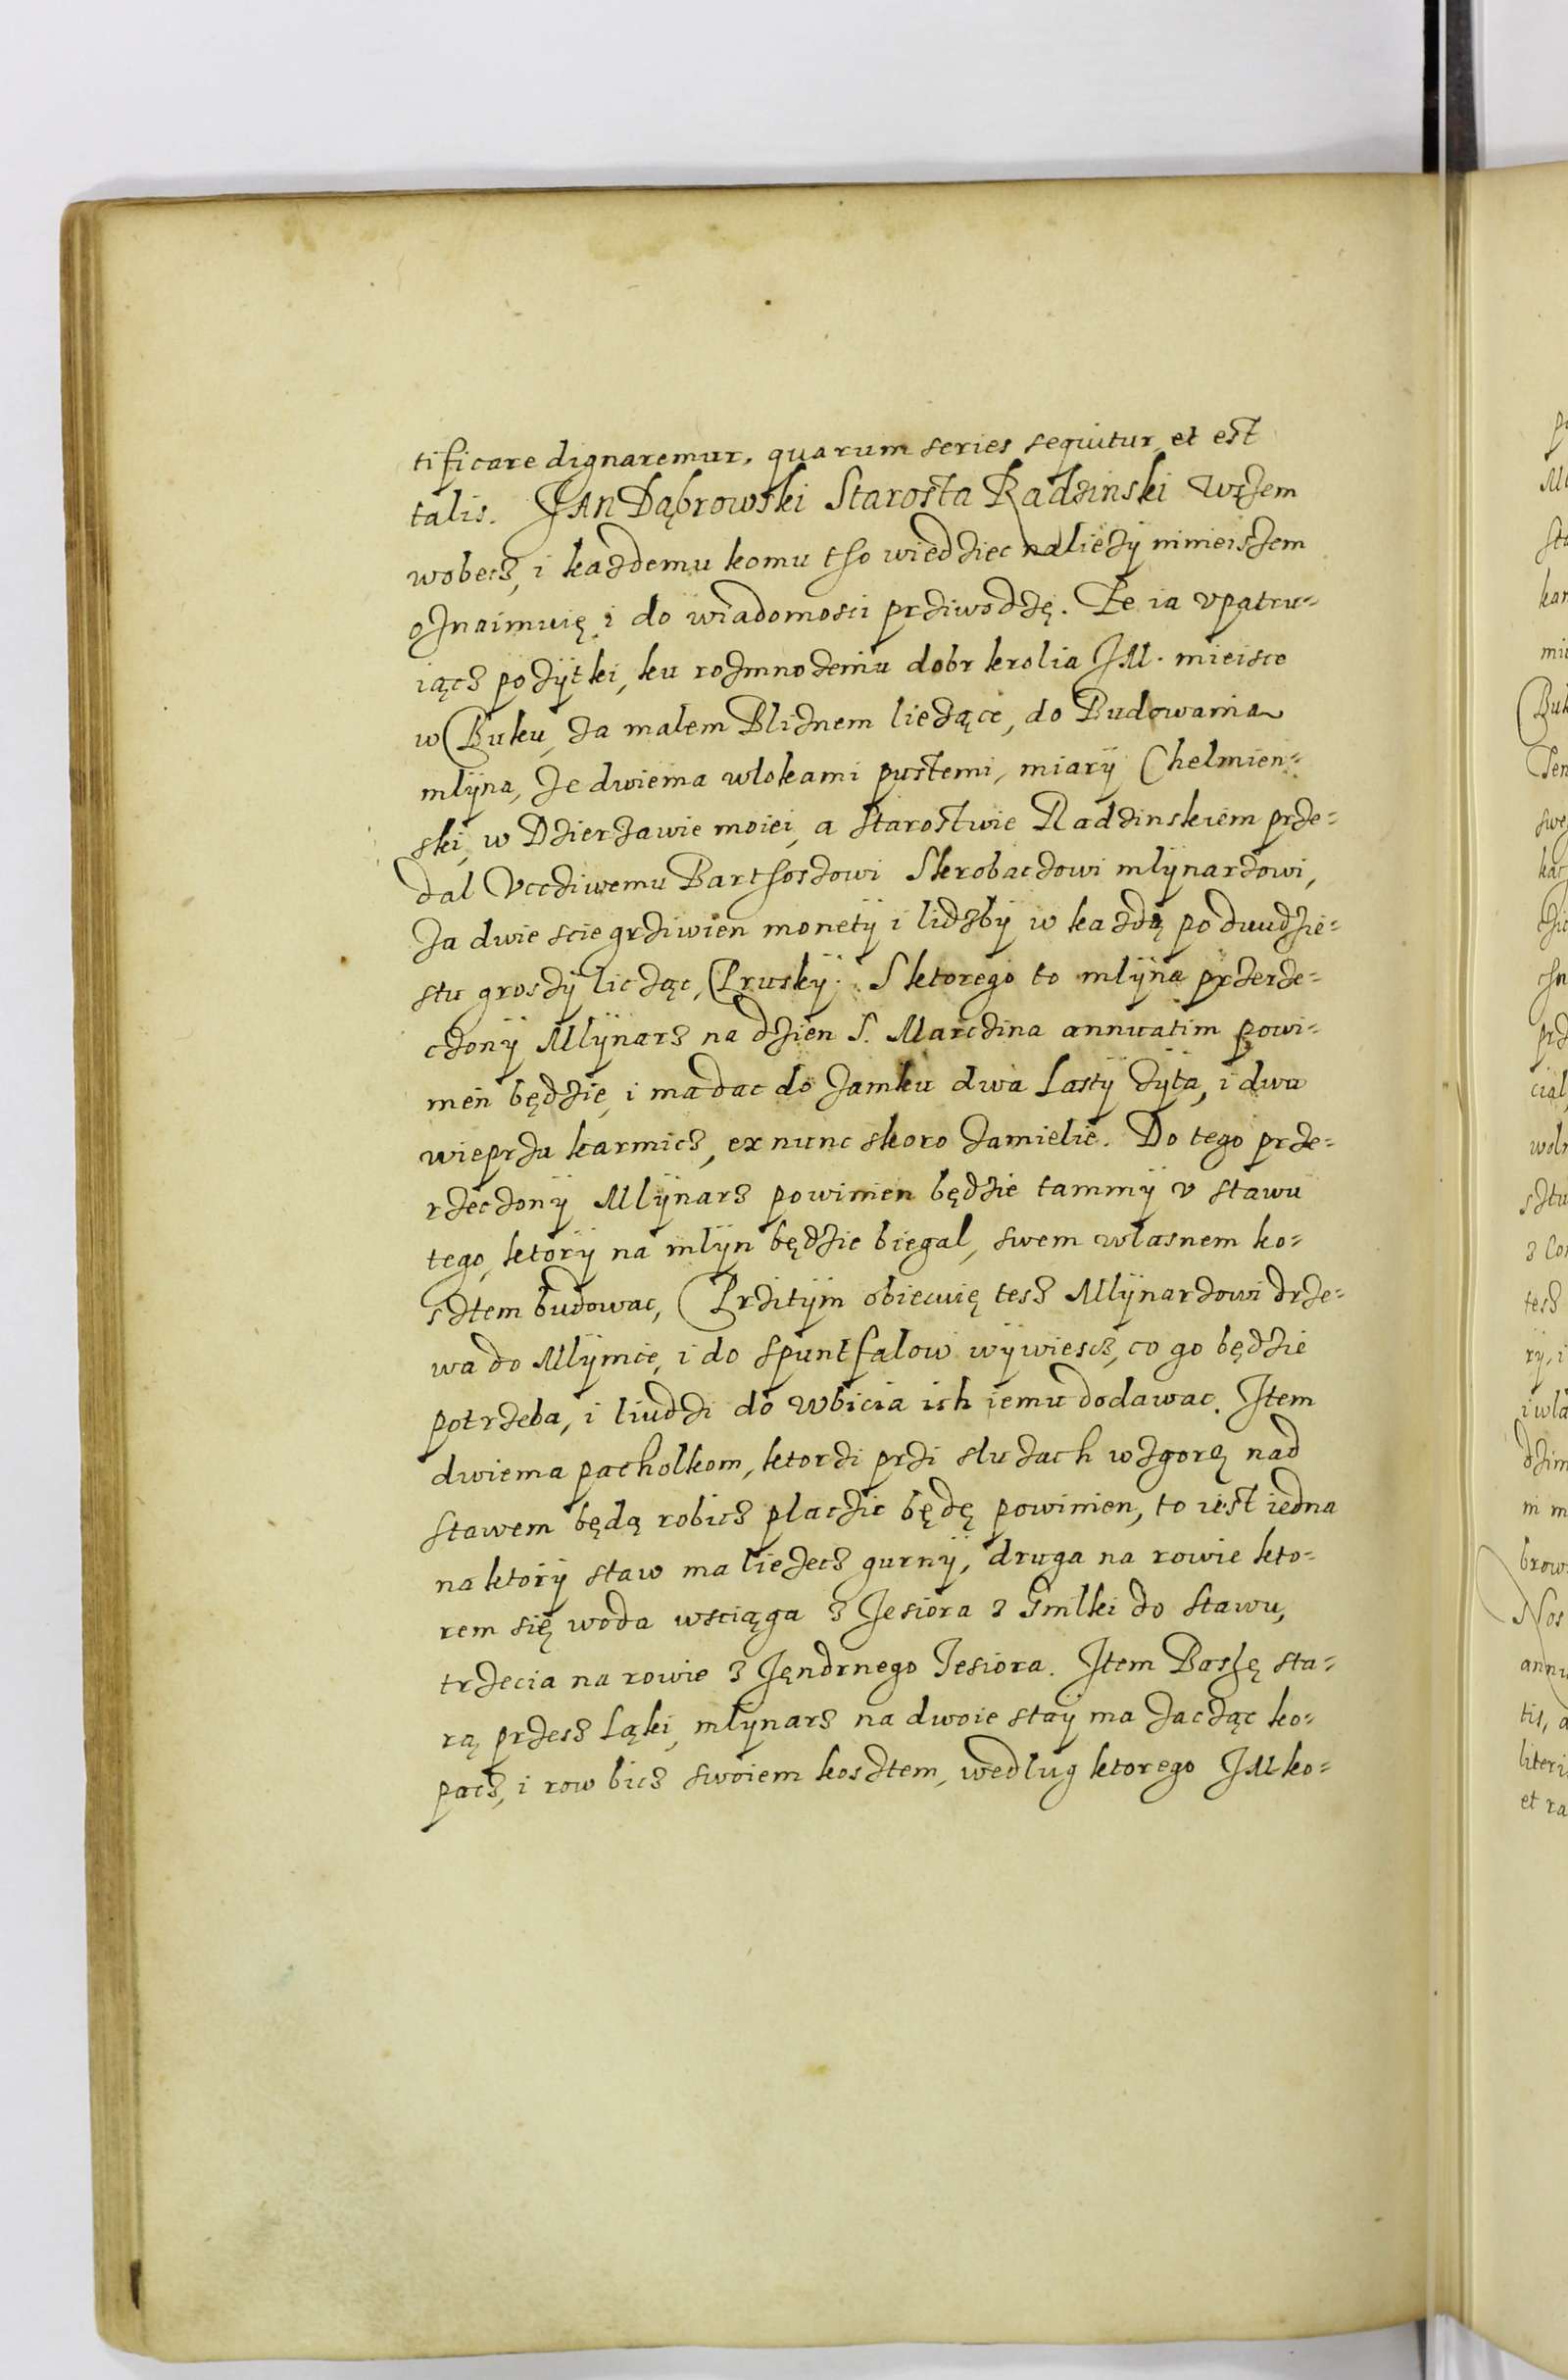 tificare dignaremur, quarum series sequitur, et est
talis. JAn Dąbrowski Starosta Radzinski wszem
wobecz, i kazdemu komu tho wiedziec naliezÿ ninieiszem
oznaimuię i do wiadomosci prziwodzę. Ze ia vpatru=
iącz pozÿtki, ku rozmnozeniu dobr krolia JM. mieisce
w Buku, za malem Bliznem liezące, do Budowania
mlÿna, ze dwiema wlokami pustemi, miarÿ Chelmien=
ski, w Dzierzawie moiei, a starostwie Radzinskiem prze=
dal Vccziwemu Barthoszowi Skrobaczowi mlÿnarzowi,
za dwie scie grziwien monetÿ i lidzbÿ w kazdą po dwudzie=
stu groszÿ licząc, Pruskÿ. S ktorego to mlÿna przerze=
czonÿ Mlÿnarz na dzien S. Marczina annuatim powi=
nien będzie, i ma dac do zamku dwa Lastÿ zÿta, i dwa
wieprza karmicz, ex nunc skoro zamielie. Do tego prze=
rzeczonÿ Mlÿnarz powinien będzie tammÿ v stawu
tego, ktorÿ na mlÿn będzie biegal, swem wlasnem ko=
sztem budowac, Przitÿm obiecuię tesz Mlÿnarzowi drze=
wa do Mlÿnice, i do Spuntfalow wÿwiescz, co go będzie
potrzeba, i liudzi do wbicia ich iemu dodawac. Item
dwiema pacholkom, ktorzi przi sluzach wzgorę nad
stawem będą robicz placzic będę powinien, to iest iedna
na ktorÿ staw ma liezecz gurnÿ, druga na rowie kto=
rem się woda wsciąga z Jesiora z Gmilki do stawu,
trzecia na rowie z Jęndrnego Jesiora. Item Boszę sta=
rą przesz Ląki, mlÿnarz na dwoie staÿ ma zacząc ko=
pacz, i row bicz swoiem kosztem, wedlug ktorego JM ko=